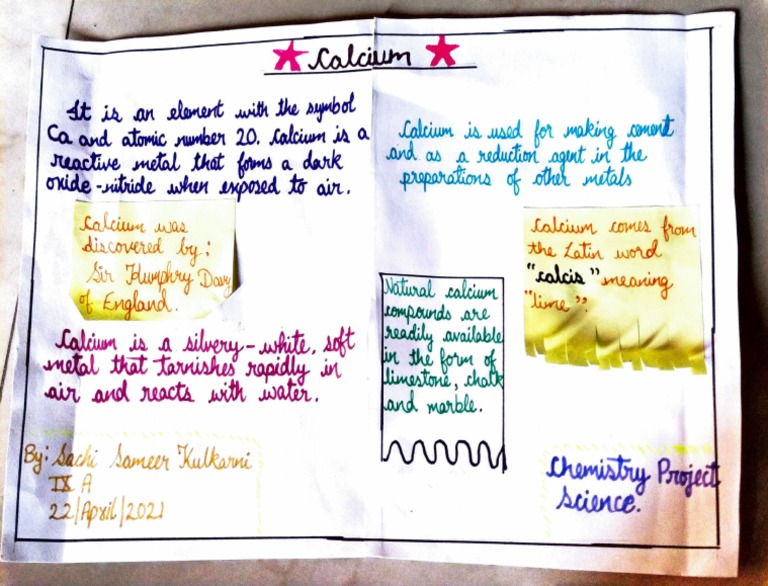 Calcium
It is an element with the symbol
Ca and atomic number 20. Calcium is a
reactive metal that forms a dark
oxide-nitride when exposed to air.
Calcium was
discovered by:
Sir Humphry Davy
of England.
Calcium is a silvery-white, soft
metal that tarnishes rapidly in
air and reacts with water.
By: Sachi Sameer Kulkarni
IX A
22/April/2021
Calcium is used for making cement
and as a reduction agent in the
preparations of other metals
Calcium comes from
the Latin word
"calcis" meaning
"lime".
Natural calcium
compounds are
readily available
in the form of
limestone, chalk
and marble.
Chemistry Project
Science.